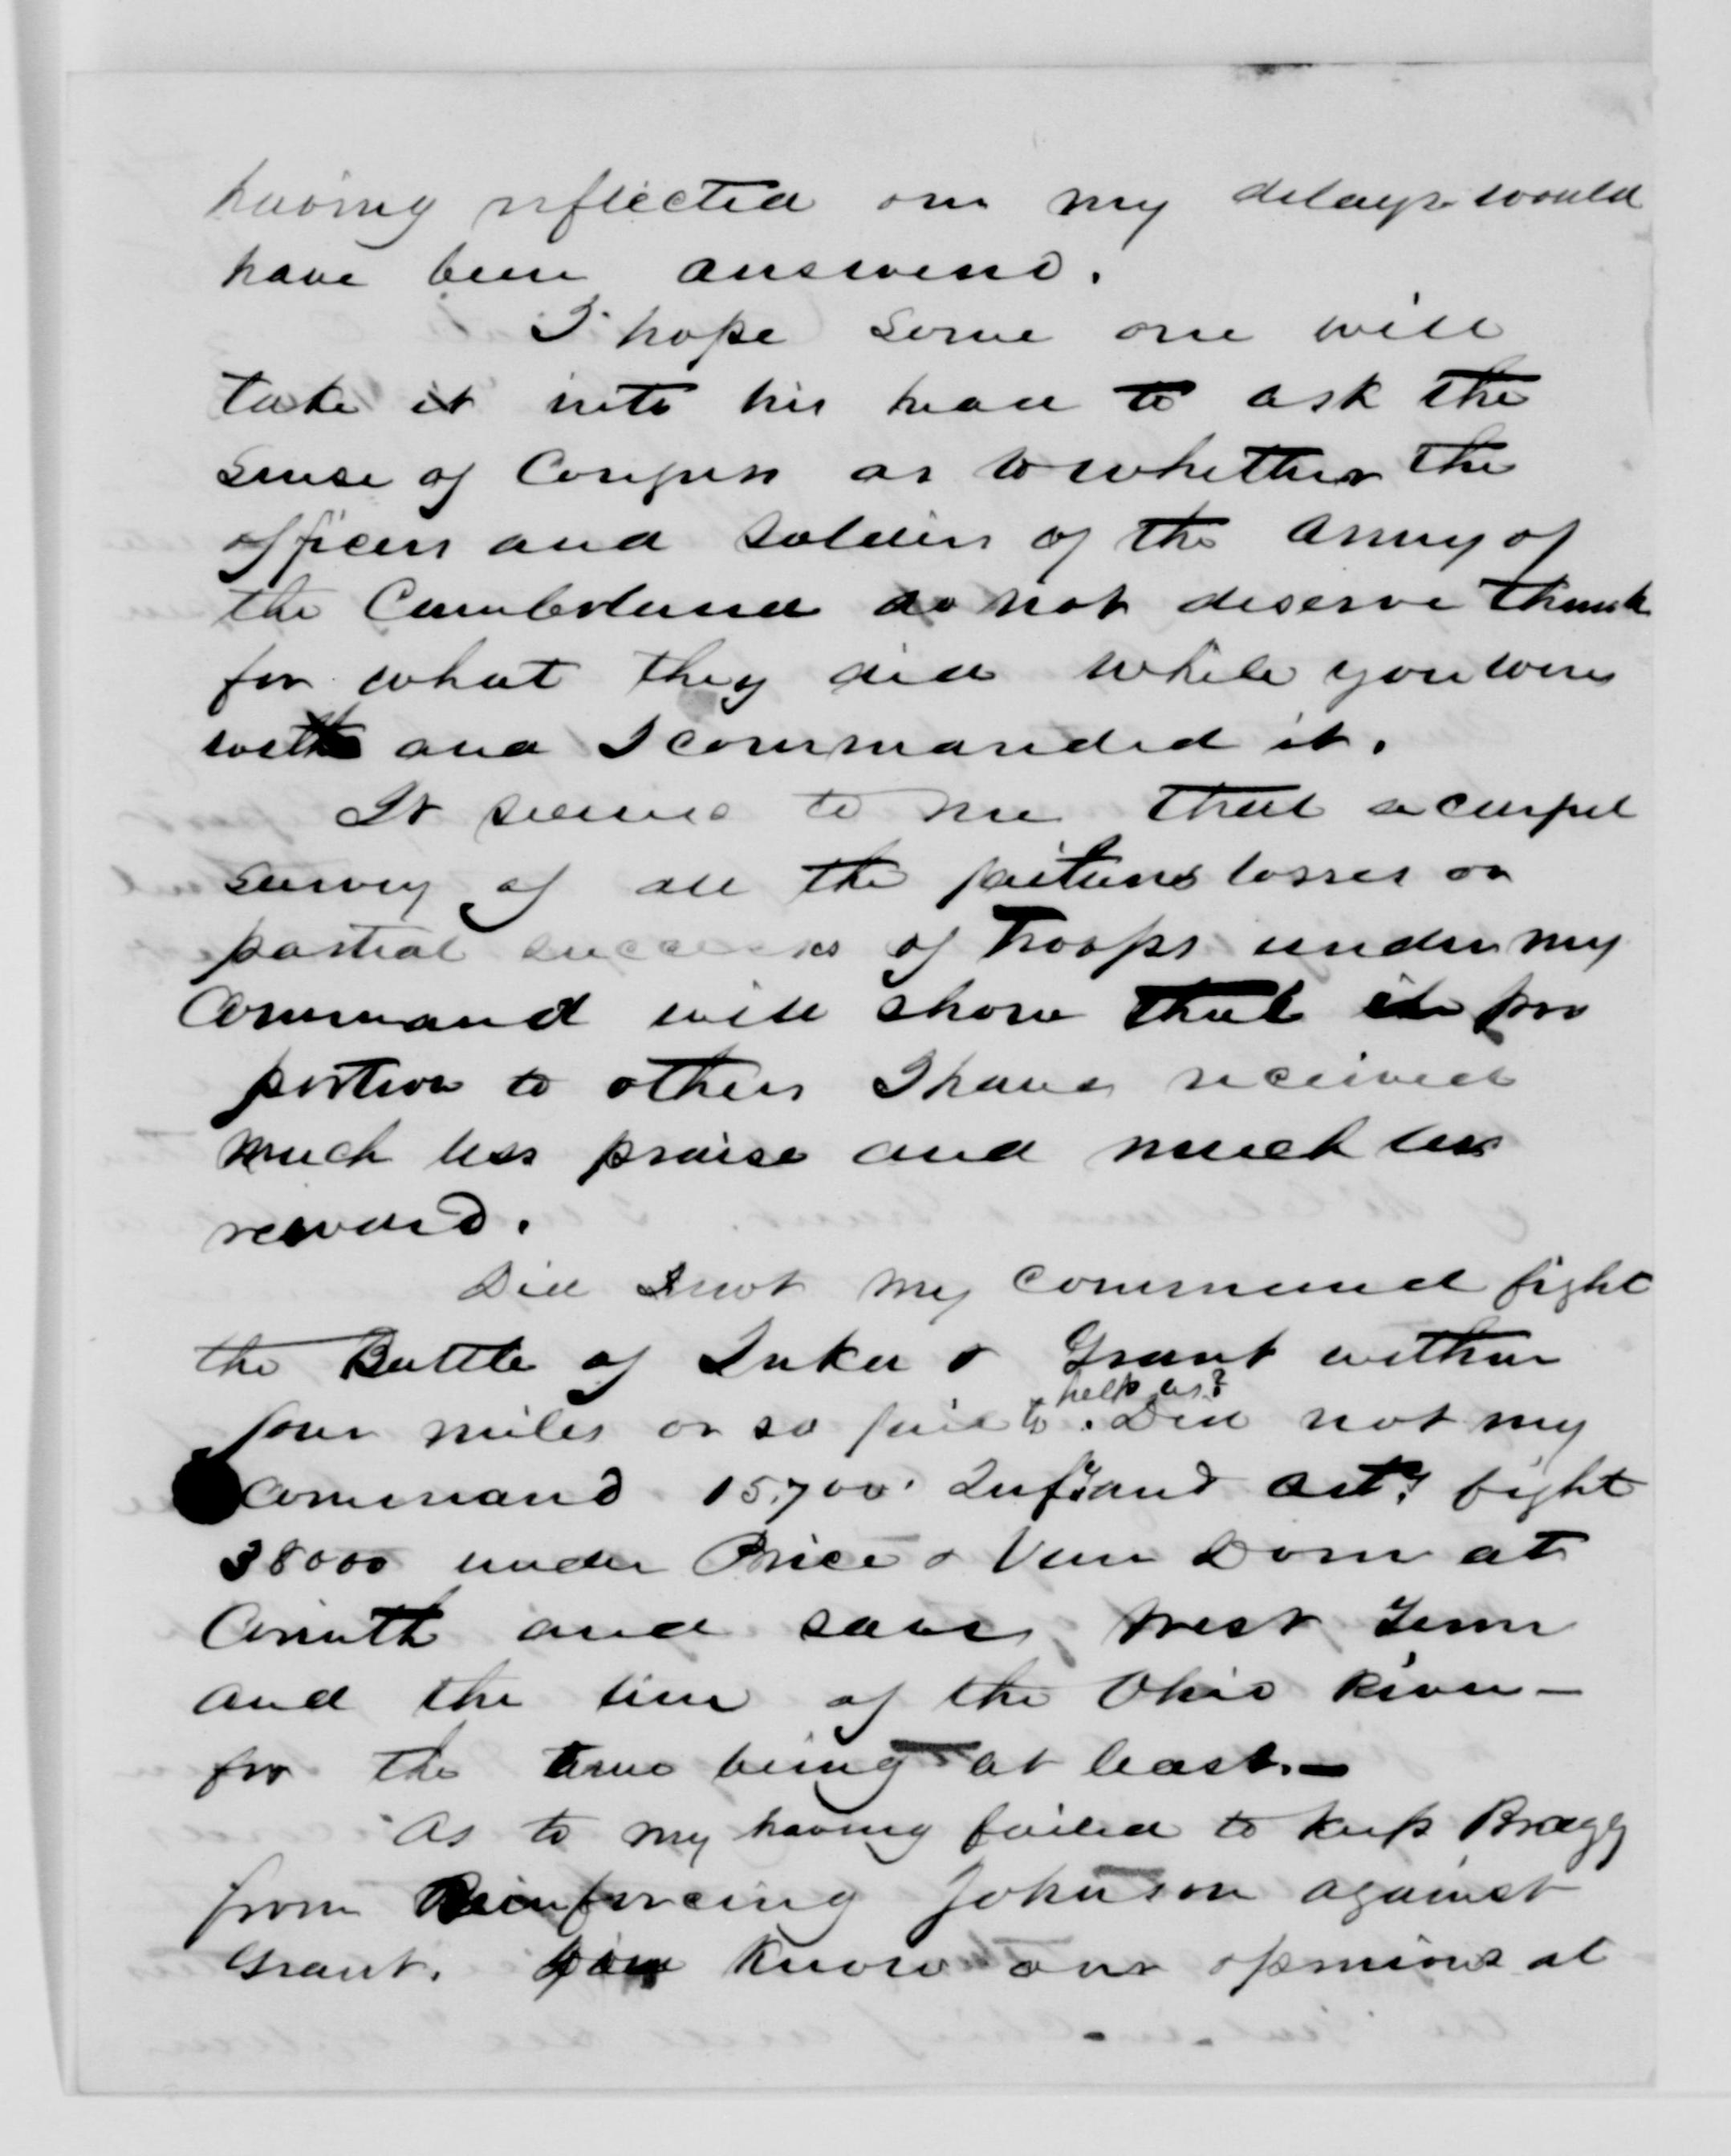 having reflected on my delays would
have been answered.
I hope some one will
take it into his head to ask the
sense of Congress as to whether the
officers and soldiers of the Army of
the Cumberland do not deserve thanks
for what they did while you were
with and I commanded it.
It seems to me that a careful
survey of all the failures losses or
partial successes of troops under my
Command will show that in pro
portion to others I have received
much less praise and much less
reward.
Did I not my command fight
the Battle of Iuka & Grant within
four miles or so fail to help us? Did not my
command 15,700 Infy and Arty fight
38000 under Price & Van Dorn at
Corinth and save West Tenn
and the line of the Ohio River —
for the time being at least. —
As to my having failed to keep Bragg
from Reinforcing Johnson against
Grant. You know our opinions at